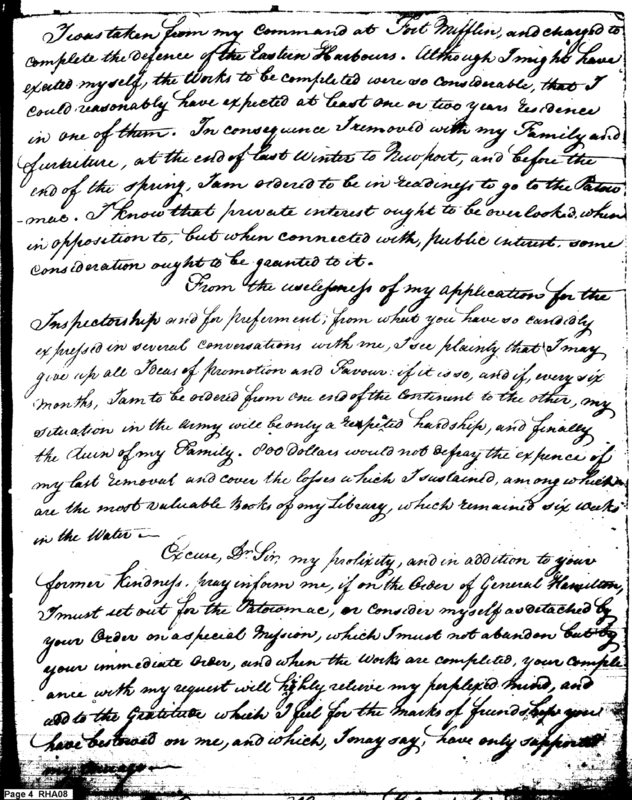 I was taken from my command at Fort Mifflin, and charged to
complete the defence of the Eastern Harbours. Although I might have
exerted myself, the Works to be completed were so considerable, that I
could reasonably have expected at least one or two years residence
in one of them. In consequence I removed with my Family and
furniture, at the end of last Winter to Newport, and before the
end of the spring, I am ordered to be in readiness to go to the Patow
-mac. I know that private interest ought to be overlooked, when
in opposition to, but when connected with, public interest. some
consideration ought to be granted to it.
From the uselessness of my application for the
Inspectorship and for preferment; from what you have so candidly
expressed in several conversations with me, I see plainly that I may
give up all Ideas of promotion and Favour: if it is so, and if, every six
months, I am to be ordered from one end of the Continent to the other, my
situation in the Army will be only a repeated hardship, and finally
the ruin of my Family. 800 dollars would not defray the expence of
my last removal and cover the losses which I sustained, among which
are the most valuable Books of my Library, which remained six weeks
in the Water—
Excuse, Dr Sir, my prolixity, and in addition to your
former Kindness. pray inform me, if on the Order of General Hamilton,
I must set out for the Potowmac, or consider myself as detached by
your Order on a special Mission, which I must not abandon but by
your immediate Order, and when the Works are completed, your compli
ance with my request will highly relieve my perplexed mind, and
add to the Gratitude which I feel for the Marks of friendship you
have bestowed on me, and which, I may say, have only supported
my
Page 4 RHA08